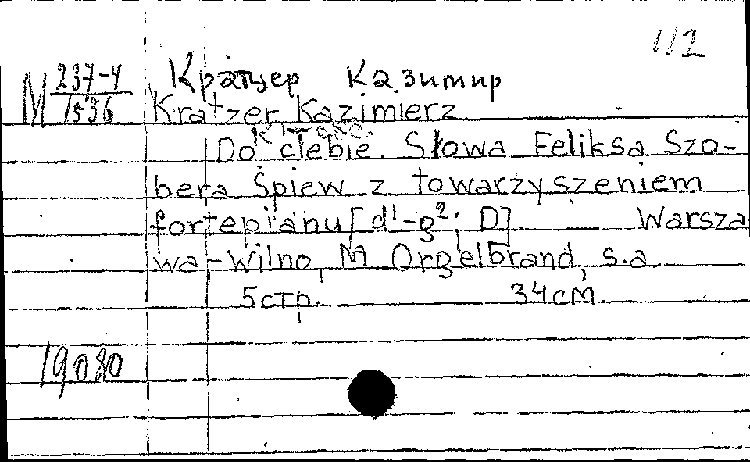 1/2
M 237-4/1536 Кратцер Казимир
Kratzer Kazimierz
Do ciebie. Słowa Feliksa Szo-
bera Śpiew z towarzyszeniem
fortepianu [d¹-g²; D] Warsza
wa-Wilno, M Orgelbrand, s.a
5 стр. 34 см.
19080